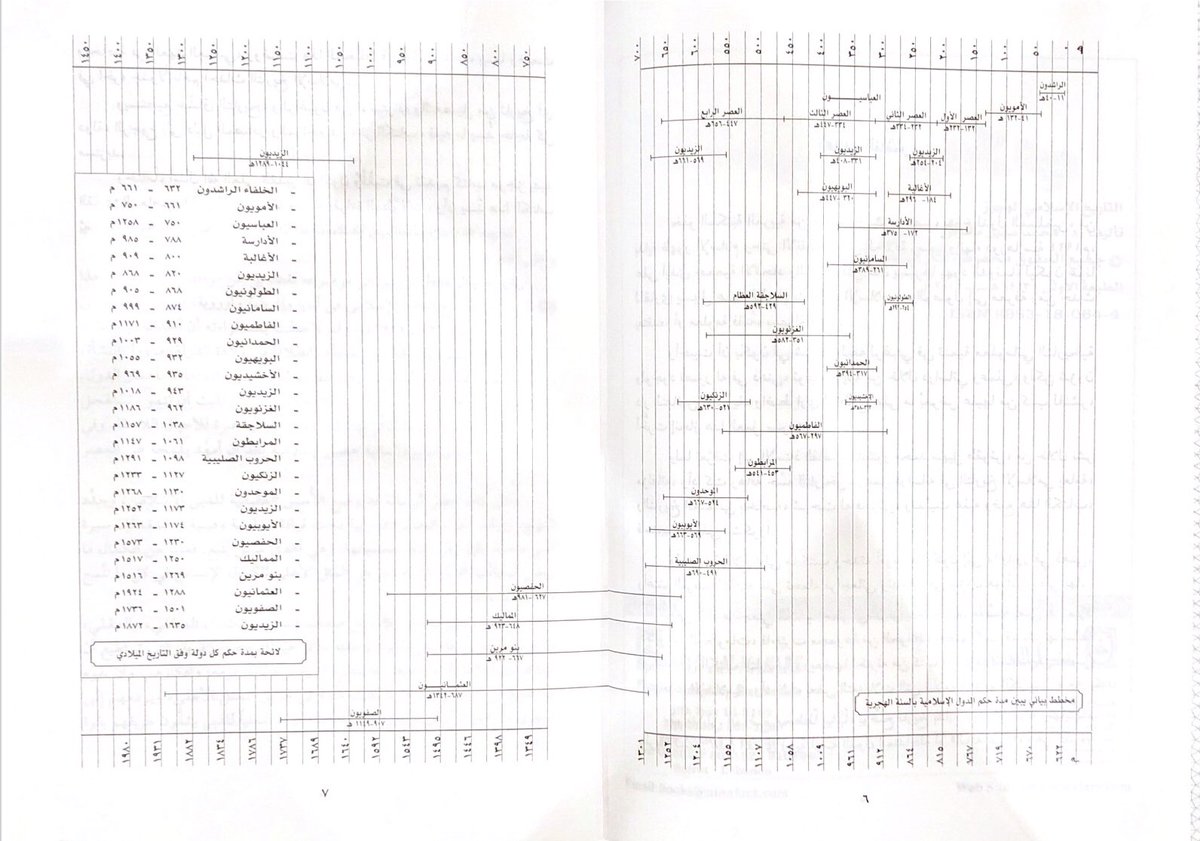 هـ ٠ ٥٠ ١٠٠ ١٥٠ ٢٠٠ ٢٥٠ ٣٠٠ ٣٥٠ ٤٠٠ ٤٥٠ ٥٠٠ ٥٥٠ ٦٠٠ ٦٥٠ ٧٠٠
الراشدون
١١-٤٠هـ
العباسيـــــــون
الأمويون
٤١-١٣٢ هـ
العصر الأول
١٣٢-٢٣٢هـ
العصر الثاني
٢٣٢-٣٣٤هـ
العصر الثالث
٣٣٤-٤٤٧هـ
العصر الرابع
٤٤٧-٦٥٦هـ
الزيديون
٢٠٤-٢٥٤هـ
الزيديون
٣٣١-٤٠٨هـ
الزيديون
٥٦٩-٦٦١هـ
الأغالبة
١٨٤- ٢٩٦هـ
البويهيون
٣٢٠-٤٤٧هـ
الأدارسة
١٧٢- ٣٧٥هـ
السامانيون
٢٦١-٣٨٩هـ
السلاجقة العظام
٤٢٩-٥٩٢هـ
الطولونيون
الغزنويون
٣٥١-٥٨٢هـ
الحمدانيون
٣١٧-٣٩٤هـ
الزنكيون
٥٢١-٦٣٠هـ
الإخشيديون
الفاطميون
٢٩٧-٥٦٧هـ
المرابطون
٤٥٣-٥٤١هـ
الموحدون
٥٢٤-٦٦٧هـ
الأيوبيون
٥٦٩-٦٦٣هـ
الحروب الصليبية
٤٩١-٦٩٠هـ
مخطط بياني يبين مدة حكم الدول الإسلامية بالسنة الهجرية
م ٦٢٢ ٦٧٠ ٧١٩ ٧٦٧ ٨١٥ ٨٦٤ ٩١٢ ٩٦١ ١٠٠٩ ١٠٥٨ ١١٠٧ ١١٥٥ ١٢٠٤ ١٢٥٢ ١٣٠١
٦
٧٥٠ ٨٠٠ ٨٥٠ ٩٠٠ ٩٥٠ ١٠٠٠ ١٠٥٠ ١١٠٠ ١١٥٠ ١٢٠٠ ١٢٥٠ ١٣٠٠ ١٣٥٠ ١٤٠٠ ١٤٥٠
الزيديون
١٠٤٤-١٢٨٩هـ
- الخلفاء الراشدون ٦٣٢ - ٦٦١ م
- الأمويون ٦٦١ - ٧٥٠ م
- العباسيون ٧٥٠ - ١٢٥٨م
- الأدارسة ٧٨٨ - ٩٨٥ م
- الأغالبة ٨٠٠ - ٩٠٩ م
- الزيديون ٨٢٠ - ٨٦٨ م
- الطولونيون ٨٦٨ - ٩٠٥ م
- السامانيون ٨٧٤ - ٩٩٩ م
- الفاطميون ٩١٠ - ١١٧١م
- الحمدانيون ٩٢٩ - ١٠٠٣م
- البويهيون ٩٣٢ - ١٠٥٥م
- الأخشيديون ٩٣٥ - ٩٦٩ م
- الزيديون ٩٤٣ - ١٠١٨م
- الغزنويون ٩٦٢ - ١١٨٦م
- السلاجقة ١٠٣٨ - ١١٥٧م
- المرابطون ١٠٦١ - ١١٤٧م
- الحروب الصليبية ١٠٩٨ - ١٢٩١م
- الزنكيون ١١٢٧ - ١٢٣٣م
- الموحدون ١١٣٠ - ١٢٦٨م
- الزيديون ١١٧٣ - ١٢٥٢م
- الأيوبيون ١١٧٤ - ١٢٦٣م
- الحفصيون ١٢٣٠ - ١٥٧٣م
- المماليك ١٢٥٠ - ١٥١٧م
- بنو مرين ١٢٦٩ - ١٥١٦م
- العثمانيون ١٢٨٨ - ١٩٢٤م
- الصفويون ١٥٠١ - ١٧٣٦م
- الزيديون ١٦٣٥ - ١٨٧٢م
لائحة بمدة حكم كل دولة وفق التاريخ الميلادي
الحفصيون
٦٢٧-٩٨١هـ
المماليك
٦٤٨-٩٢٣ هـ
بنو مرين
٦٦٧-٩٢٢ هـ
العثمـــانيـــــون
٦٨٧-١٣٤٢هـ
الصفويون
٩٠٧-١١٤٩هـ
١٣٤٩ ١٣٩٨ ١٤٤٦ ١٤٩٥ ١٥٤٣ ١٥٩٢ ١٦٤٠ ١٦٨٩ ١٧٣٧ ١٧٨٦ ١٨٣٤ ١٨٨٢ ١٩٣١ ١٩٨٠
٧